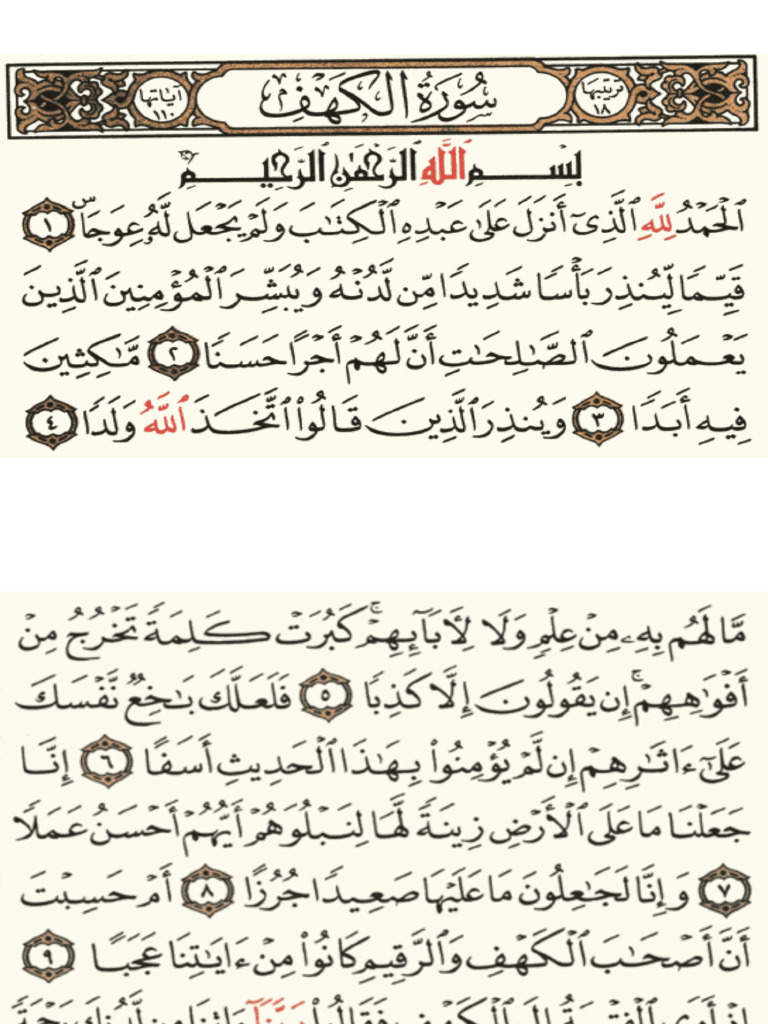 ترتيبها ١٨ سُورَةُ الكَهْفِ آيَاتها ١١٠
بِسْمِ ٱللَّهِ ٱلرَّحْمَٰنِ ٱلرَّحِيمِ
ٱلْحَمْدُ لِلَّهِ ٱلَّذِىٓ أَنزَلَ عَلَىٰ عَبْدِهِ ٱلْكِتَٰبَ وَلَمْ يَجْعَل لَّهُۥ عِوَجَاۜ ١
قَيِّمًا لِّيُنذِرَ بَأْسًا شَدِيدًا مِّن لَّدُنْهُ وَيُبَشِّرَ ٱلْمُؤْمِنِينَ ٱلَّذِينَ
يَعْمَلُونَ ٱلصَّٰلِحَٰتِ أَنَّ لَهُمْ أَجْرًا حَسَنًا ٢ مَّٰكِثِينَ
فِيهِ أَبَدًا ٣ وَيُنذِرَ ٱلَّذِينَ قَالُوا۟ ٱتَّخَذَ ٱللَّهُ وَلَدًا ٤
مَّا لَهُم بِهِۦ مِنْ عِلْمٍ وَلَا لِأٓبَآئِهِمْ ۚ كَبُرَتْ كَلِمَةً تَخْرُجُ مِنْ
أَفْوَٰهِهِمْ ۚ إِن يَقُولُونَ إِلَّا كَذِبًا ٥ فَلَعَلَّكَ بَٰخِعٌ نَّفْسَكَ
عَلَىٰٓ ءَاثَٰرِهِمْ إِن لَّمْ يُؤْمِنُوا۟ بِهَٰذَا ٱلْحَدِيثِ أَسَفًا ٦ إِنَّا
جَعَلْنَا مَا عَلَى ٱلْأَرْضِ زِينَةً لَّهَا لِنَبْلُوَهُمْ أَيُّهُمْ أَحْسَنُ عَمَلًا
٧ وَإِنَّا لَجَٰعِلُونَ مَا عَلَيْهَا صَعِيدًا جُرُزًا ٨ أَمْ حَسِبْتَ
أَنَّ أَصْحَٰبَ ٱلْكَهْفِ وَٱلرَّقِيمِ كَانُوا۟ مِنْ ءَايَٰتِنَا عَجَبًا ٩
إِذْ أَوَى ٱلْفِتْيَةُ إِلَى ٱلْكَهْفِ فَقَالُوا۟ رَبَّنَآ ءَاتِنَا مِن لَّدُنكَ رَحْمَةً